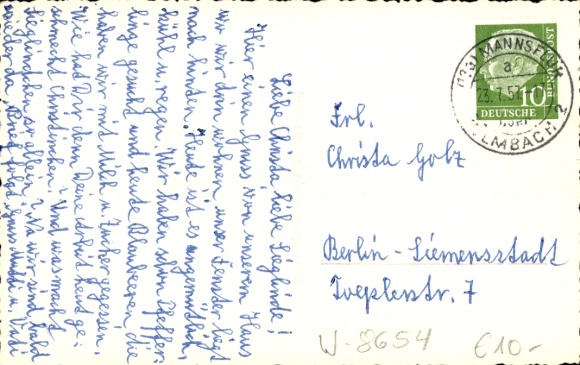 Liebe Christa liebe Sieglinde!
Hier einen Gruss von unserem Haus
wo wir drin wohnen unser Fenster liegt
nach hinten. Heute ist es ungemütlich,
kühl u. regen. Wir haben schon Pfeffer-
linge gesucht und heute Blaubeeren, die
haben wir mit Milch u. Zucker gegessen.
Wie hat Dir denn Deine Arbeit heut ge-
schmeckt Christinchen? Und was macht
Sieglindchen so allein? Na wir sind bald
wieder da.
Gruss Mutti u. Vati
Frl.
Christa Golz
Berlin-Siemensstadt
Tveplerstr. 7
MANNSFLUR
a
23.7.57
KULMBACH 2
10
DEUTSCHE
BUNDESPOST
W-8654
€10-